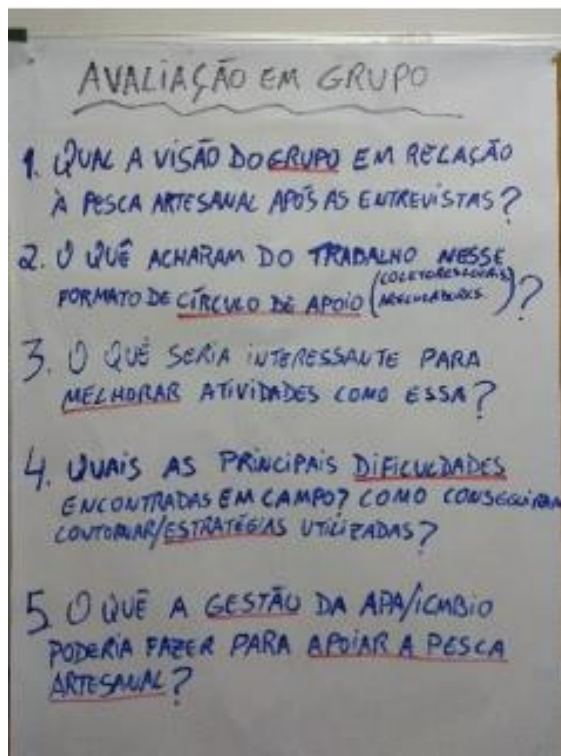 AVALIAÇÃO EM GRUPO
1. QUAL A VISÃO DO GRUPO EM RELAÇÃO
À PESCA ARTESANAL APÓS AS ENTREVISTAS?
2. O QUÊ ACHARAM DO TRABALHO NESSE
FORMATO DE CÍRCULO DE APOIO (COLETORES LOCAIS ARTICULADORES)?
3. O QUÊ SERIA INTERESSANTE PARA
MELHORAR ATIVIDADES COMO ESSA?
4. QUAIS AS PRINCIPAIS DIFICULDADES
ENCONTRADAS EM CAMPO? COMO CONSEGUIRAM
CONTORNAR/ESTRATÉGIAS UTILIZADAS?
5. O QUÊ A GESTÃO DA APA/ICMBIO
PODERIA FAZER PARA APOIAR A PESCA
ARTESANAL?